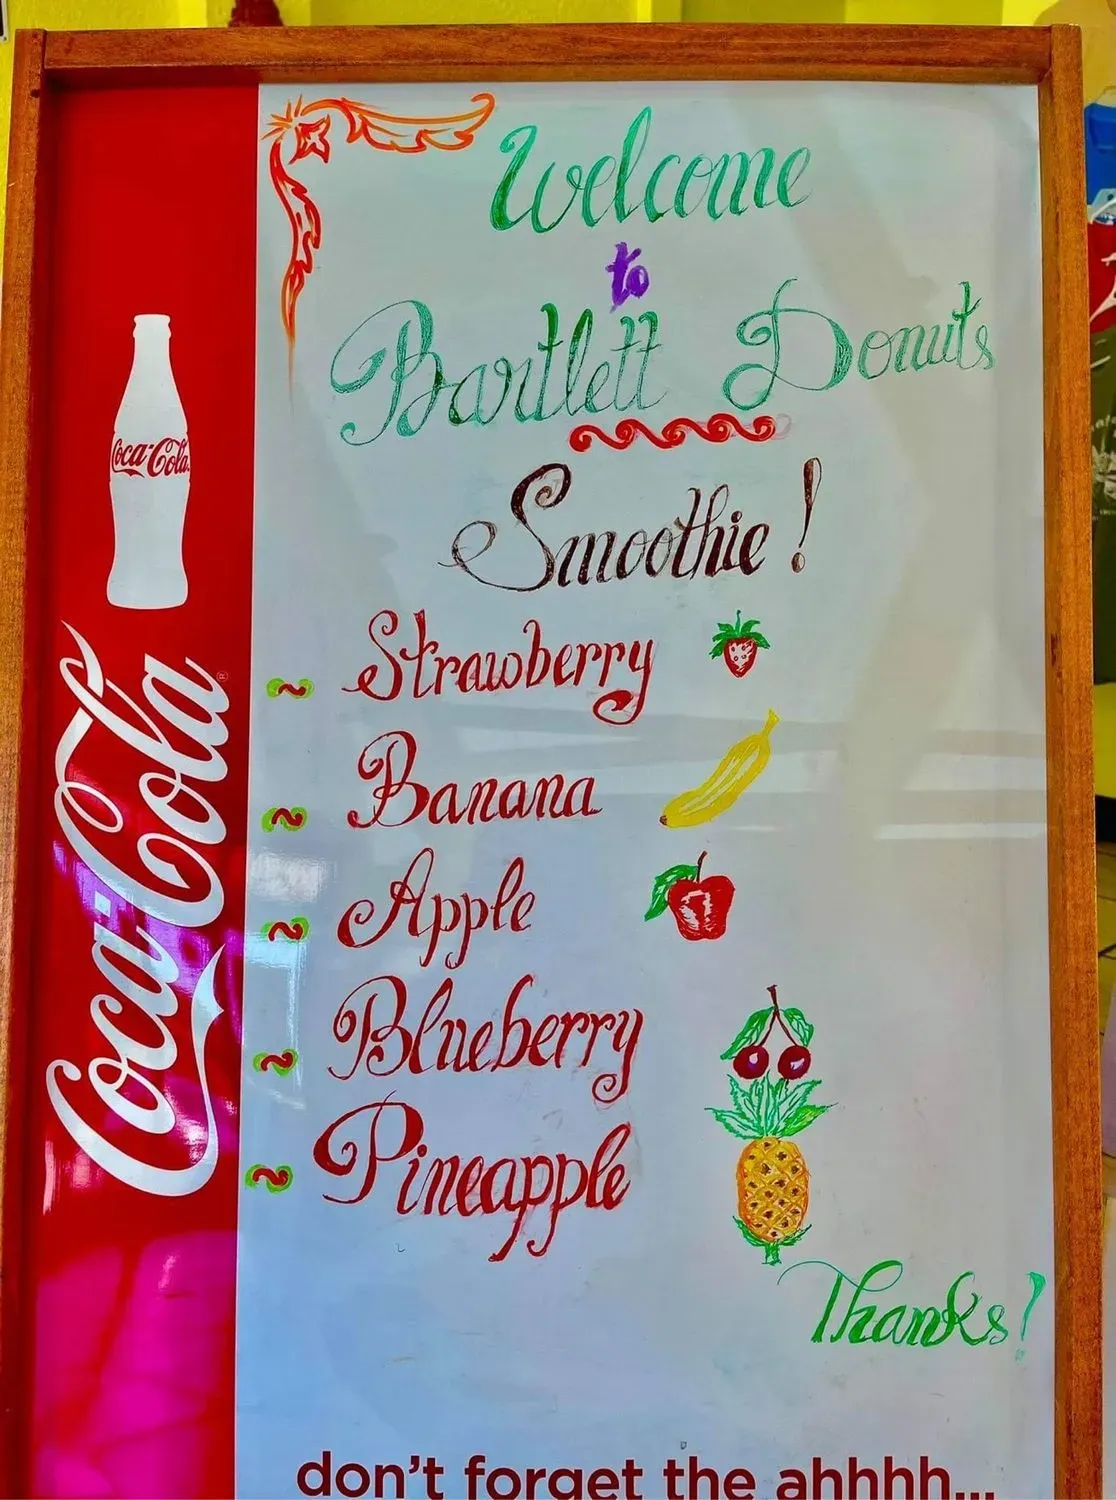 Welcome
to
Bartlett Donuts
Smoothie!
Strawberry
Banana
Apple
Blueberry
Pineapple
Thanks!
don't forget the ahhhh...
Coca-Cola
Coca-Cola®